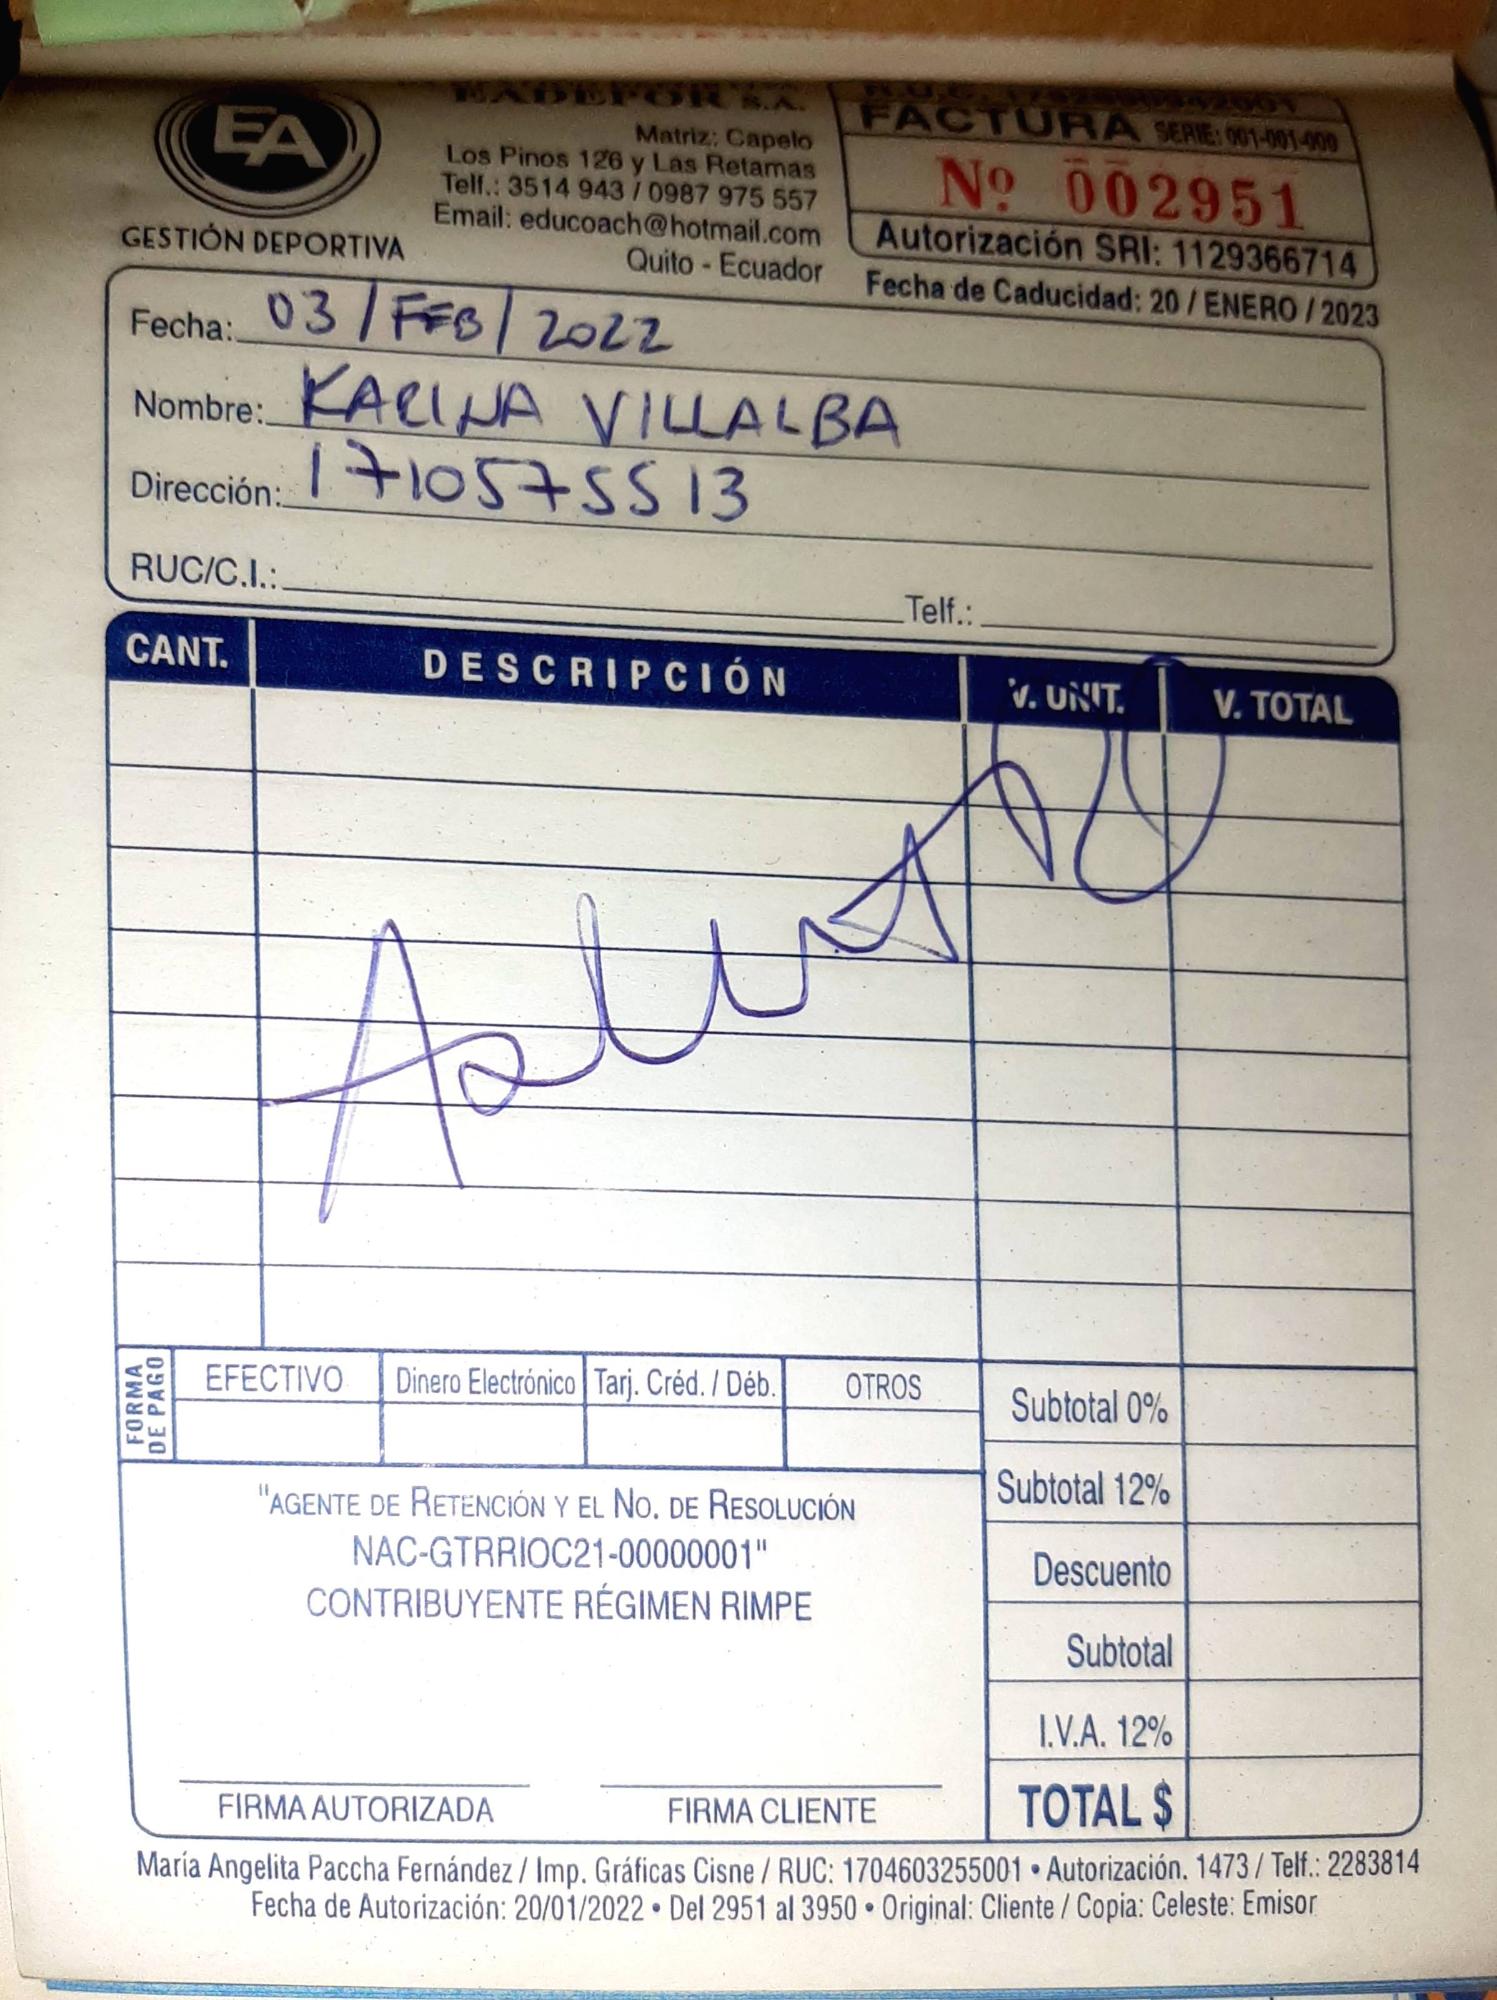 EA
GESTIÓN DEPORTIVA
EADEPOR S.A.
Matriz: Capelo
Los Pinos 126 y Las Retamas
Telf.: 3514 943 / 0987 975 557
Email: educoach@hotmail.com
Quito - Ecuador
FACTURA SERIE: 001-001-000
Nº 002951
Autorización SRI: 1129366714
Fecha de Caducidad: 20 / ENERO / 2023
Fecha: 03 / FEB / 2022
Nombre: KARINA VILLALBA
Dirección: 1710575513
RUC/C.I.: Telf.:
CANT. DESCRIPCIÓN V. UNIT. V. TOTAL
FORMA DE PAGO
EFECTIVO Dinero Electrónico Tarj. Créd. / Déb. OTROS
Subtotal 0%
Subtotal 12%
Descuento
Subtotal
I.V.A. 12%
TOTAL $
"AGENTE DE RETENCIÓN Y EL NO. DE RESOLUCIÓN
NAC-GTRRIOC21-00000001"
CONTRIBUYENTE RÉGIMEN RIMPE
FIRMA AUTORIZADA FIRMA CLIENTE
María Angelita Paccha Fernández / Imp. Gráficas Cisne / RUC: 1704603255001 • Autorización. 1473 / Telf.: 2283814
Fecha de Autorización: 20/01/2022 • Del 2951 al 3950 • Original: Cliente / Copia: Celeste: Emisor